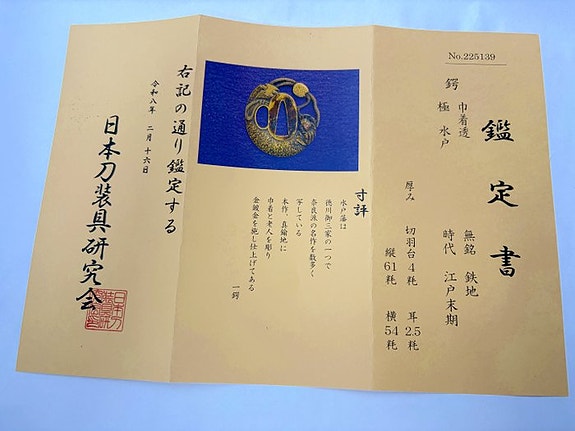 No.225139
鑑定書
鍔 巾着透
極 水戸
無銘 鉄地
時代 江戸末期
厚み 切羽台4粍 耳2.5粍
縦61粍 横54粍
寸評
水戸藩は
徳川御三家の一つで
奈良派の名作を数多く
写している
本作、真鍮地に
巾着と老人を彫り
金鍍金を施し仕上げてある
一鍔
右記の通り鑑定する
令和八年 二月十六日
日本刀装具研究会